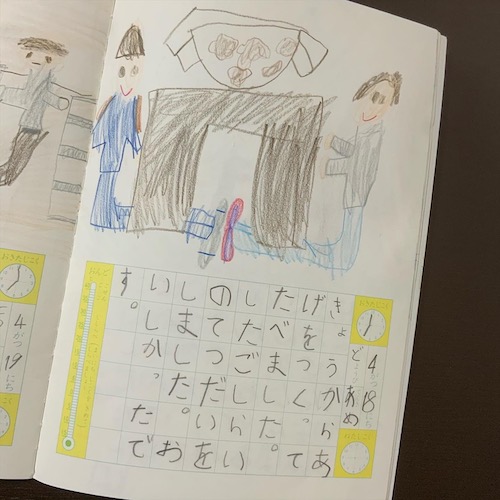 おきたじこく
4がつ18にち
ど
あめ
きょうからあ
げをつくって
たべました。
したごしらい
のてつだいを
しました。お
いしかったで
す。
4がつ
19にち